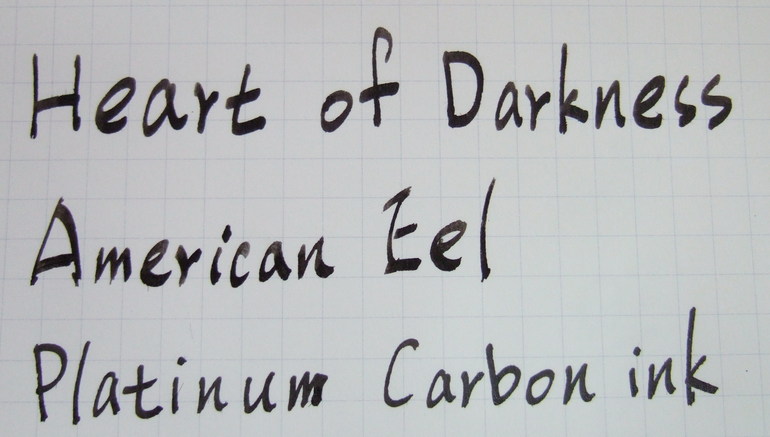 Heart of Darkness
American Eel
Platinum Carbon ink